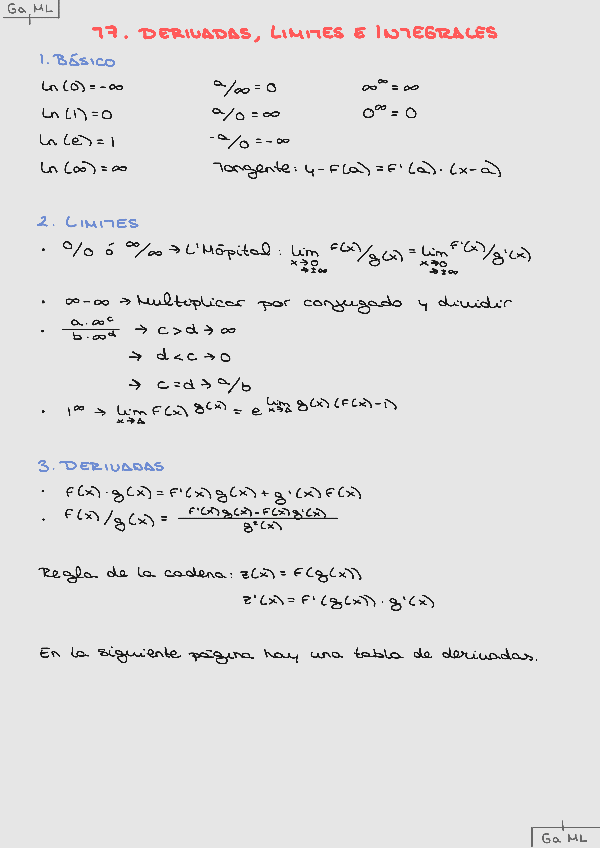 Ga ML
17. DERIVADAS, LIMITES E INTEGRALES
1. BÁSICO
ln(0)=-∞ a/∞=0 ∞^∞=∞
ln(1)=0 a/0=∞ 0^∞=0
ln(e)=1 -a/0=-∞
ln(∞)=∞ Tangente: y-F(a)=F'(a)·(x-a)
2. LIMITES
· 0/0 ó ∞/∞ → L'Hôpital: lim x→0 →±∞ F(x)/g(x) = lim x→0 →±∞ F'(x)/g'(x)
· ∞-∞ → Multiplicar por conjugado y dividir
· a·∞^c / b·∞^d → c>d → ∞
→ d<c → 0
→ c=d → a/b
· 1^∞ → lim x→Δ F(x)^g(x) = e^lim x→Δ g(x)(F(x)-1)
3. DERIVADAS
· F(x)·g(x)=F'(x)g(x)+g'(x)F(x)
· F(x)/g(x) = F'(x)g(x)-F(x)g'(x) / g²(x)
Regla de la cadena: z(x)=F(g(x))
z'(x)=F'(g(x))·g'(x)
En la siguiente página hay una tabla de derivadas.
Ga ML